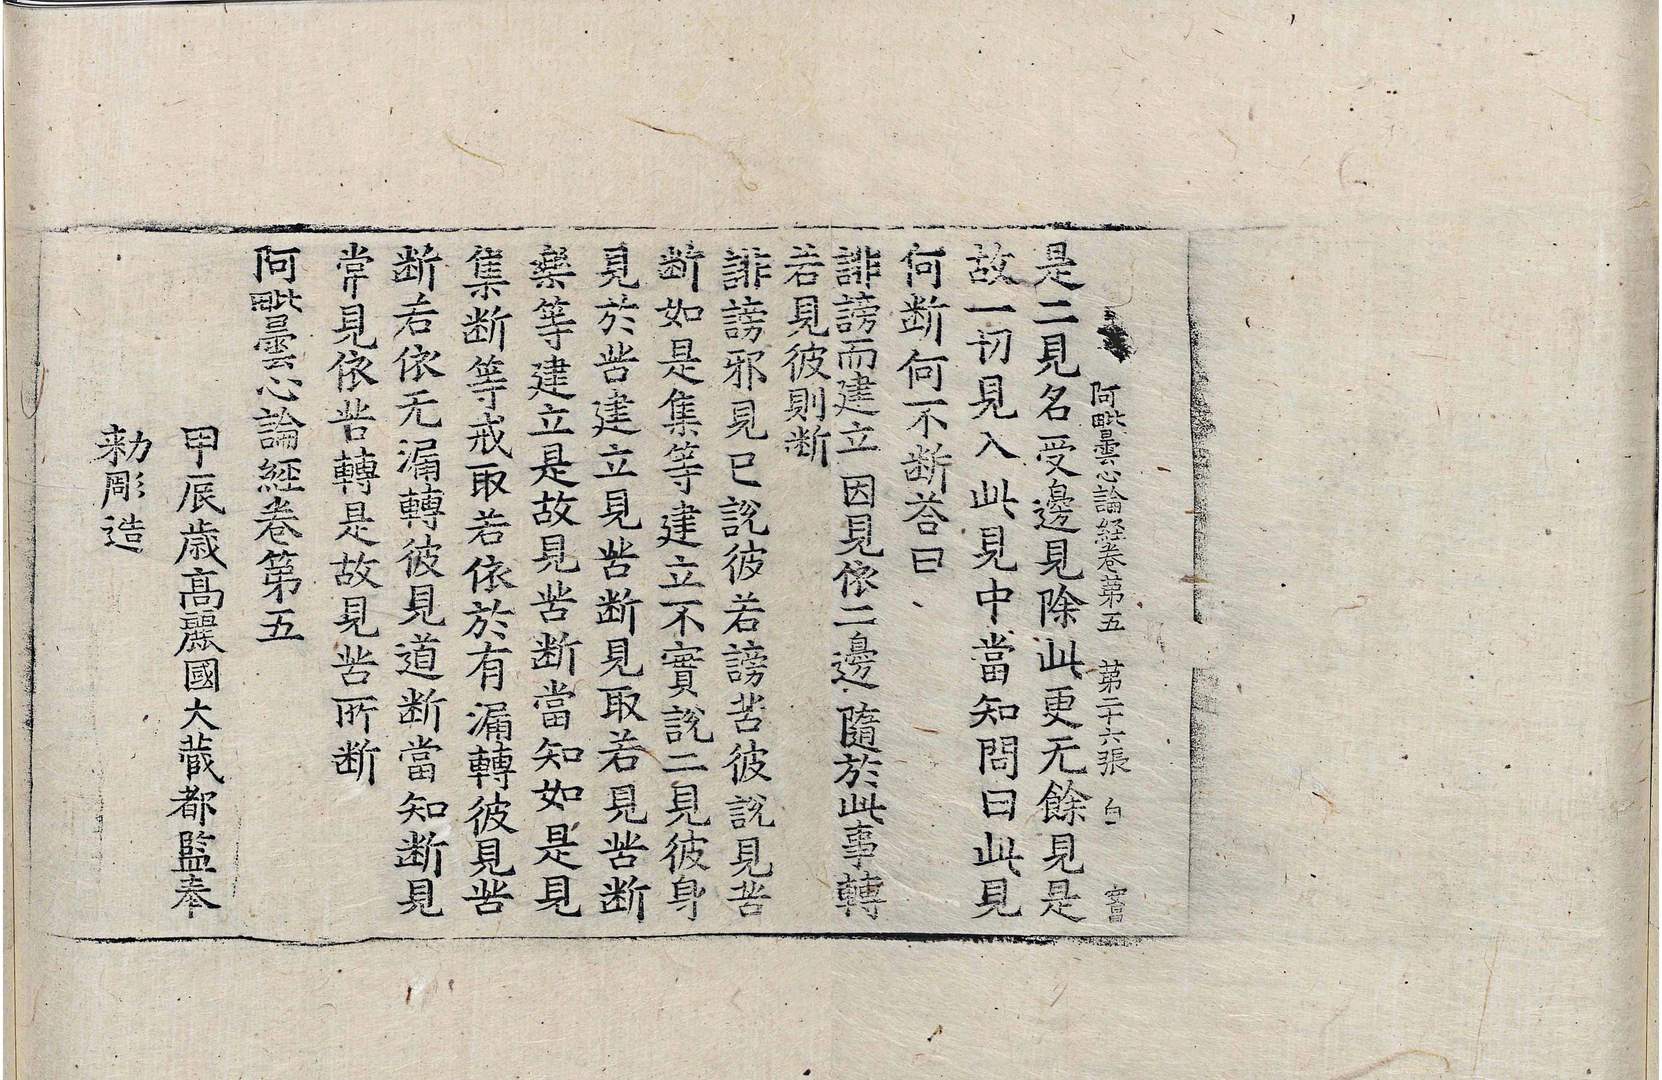 阿毗曇心論経卷第五 第二十六張 白
是二見名受邊見除此更无餘見是
故一切見入此見中當知問曰此見
何断何不断荅曰
誹謗而建立 因見依二邊 隨於此事轉
若見彼則断
誹謗邪見已說彼若謗苦彼說見苦
断如是集等建立不實說二見彼身
見於苦建立見苦断見取若見苦断
樂等建立是故見苦断當知如是見
集断等戒取若依於有漏轉彼見苦
断若依无漏轉彼見道断當知断見
常見依苦轉是故見苦所断
阿毗曇心論經卷第五
甲辰歳高麗國大藏都監奉
勅彫造